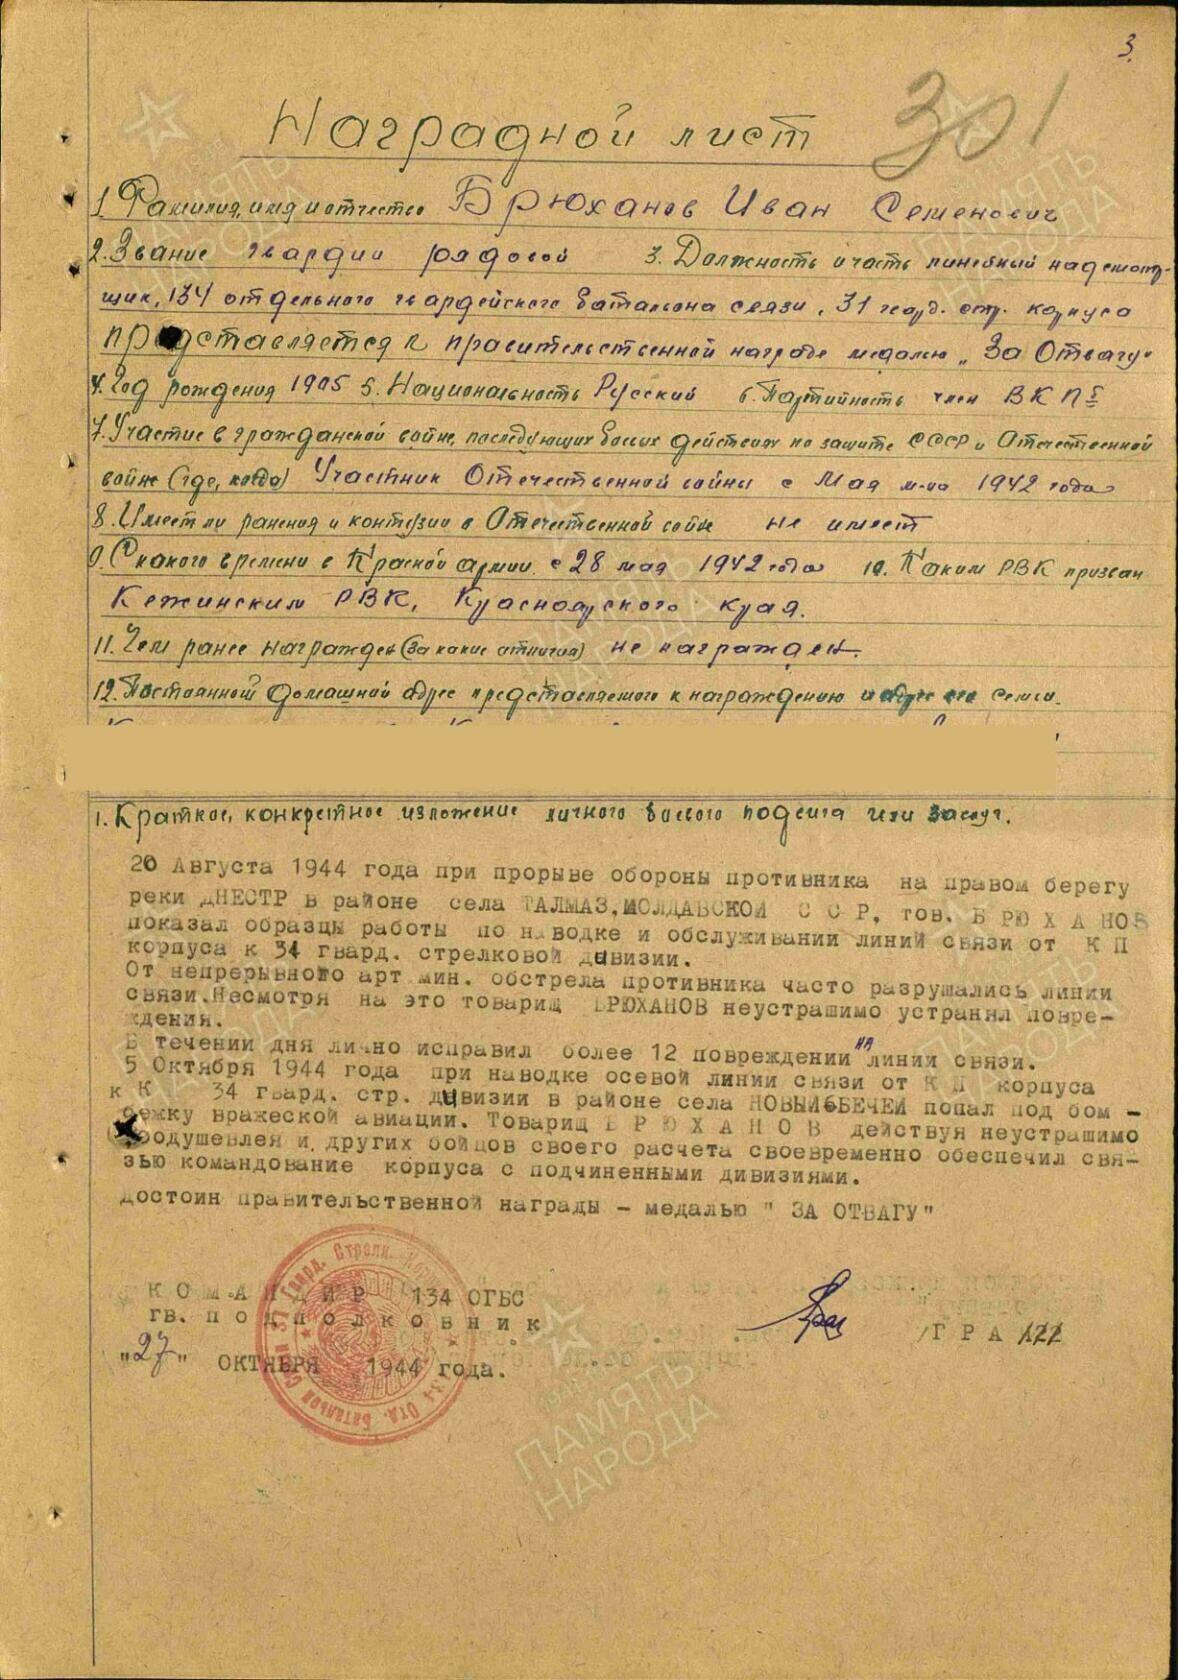 3.
301
Наградной лист
1. Фамилия, имя и отчество Брюханов Иван Семенович
2. Звание гвардии рядовой 3. Должность и часть линейный надсмотр-
щик, 134 отдельного гвардейского батальона связи, 31 гвард. стр. корпуса
представляется к правительственной награде медалью "За Отвагу"
4. Год рождения 1905 5. Национальность Русский 6. Партийность член ВКПб
7. Участие в гражданской войне, последующих боевых действиях по защите СССР и Отечественной
войне (где, когда) Участник Отечественной войны с Мая м-ца 1942 года
8. Имеет ли ранения и контузии в Отечественной войне не имеет
9. С какого времени в Красной армии с 28 мая 1942 года 10. Каким РВК призван
Кежинским РВК, Красноярского края.
11. Чем ранее награжден (за какие отличия) не награжден.
12. Постоянный домашний адрес представляемого к награждению и адрес его семьи.
1. Краткое, конкретное изложение личного боевого подвига или заслуг.
20 Августа 1944 года при прорыве обороны противника на правом берегу
реки ДНЕСТР в районе села ТАЛМАЗ, МОЛДАВСКОЙ С С Р, тов. Б Р Ю Х А Н О В
показал образцы работы по наводке и обслуживании линий связи от К П
корпуса к 34 гвард. стрелковой дивизии.
От непрерывного арт мин. обстрела противника часто разрушались линии
связи. Несмотря на это товарищ БРЮХАНОВ неустрашимо устранял повре-
ждения.
В течении дня лично исправил более 12 повреждении на линии связи.
5 Октября 1944 года при наводке осевой линии связи от К П корпуса
к К 34 гвард. стр. дивизии в районе села НОВЫЙ-БЕЧЕЙ попал под бом-
бежку вражеской авиации. Товарищ Б Р Ю Х А Н О В действуя неустрашимо
воодушевлея и других бойцов своего расчета своевременно обеспечил свя-
зью командование корпуса с подчиненными дивизиями.
достоин правительственной награды - медалью " ЗА ОТВАГУ"
К О М А Н Д И Р 134 ОГБС
гв. п о д п о л к о в н и к /Г Р А
"27" ОКТЯБРЯ 1944 года.
31 Гвард. Стрелк. Отд. Батальон Связи
ПАМЯТЬ НАРОДА